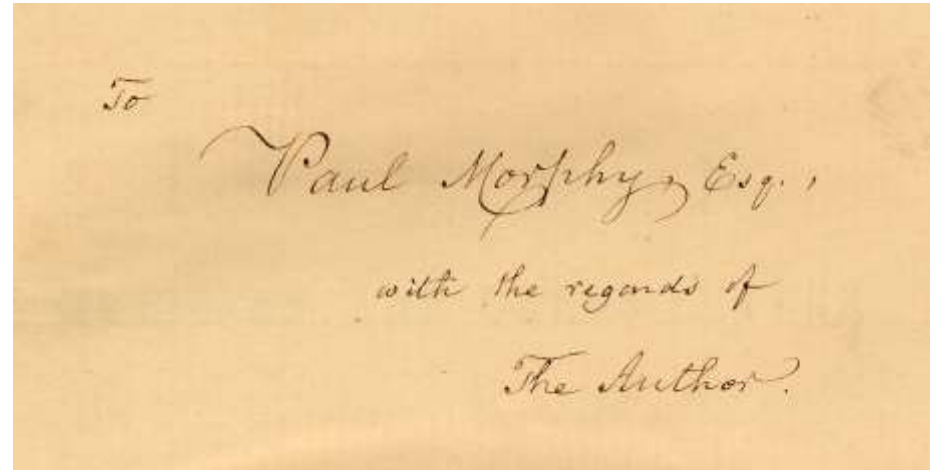 To
Paul Morphy, Esq.,
with the regards of
The Author.